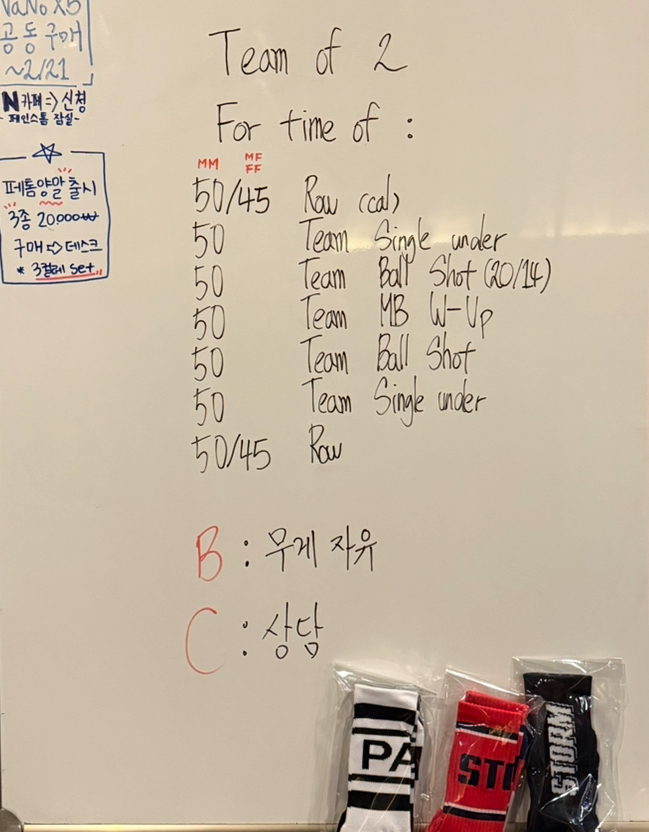 NaNo X5
공동구매
~2/21
N카페=>신청
-페인스톰 잠실-
페톰양말 출시
3종 20.000₩
구매 ⇨ 데스크
* 3켤레 set
Team of 2
For time of :
MM MF
FF
50/45 Row (cal)
50 Team Single under
50 Team Ball Shot (20/14)
50 Team MB W-Up
50 Team Ball Shot
50 Team Single under
50/45 Row
B : 무게 자유
C : 상담
PA
STO
STORM